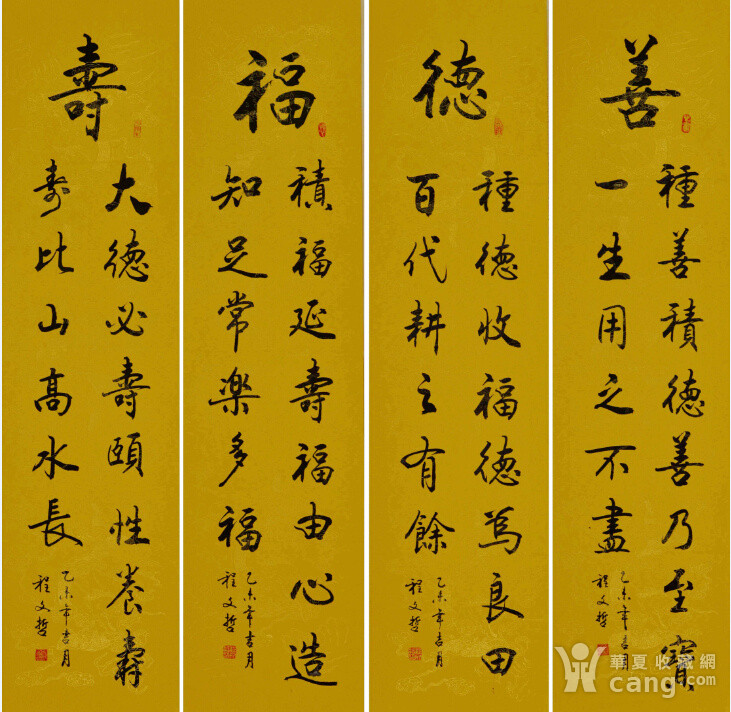 善
種善積德善乃至寶
一生用之不盡
乙未年吉月
程文哲
德
種德收福德為良田
百代耕之有餘
乙未年吉月
程文哲
福
積福延壽福由心造
知足常楽多福
乙未年吉月
程文哲
壽
大德必壽頤性養壽
寿比山高水長
乙未年吉月
程文哲
華夏收藏網
cang.com